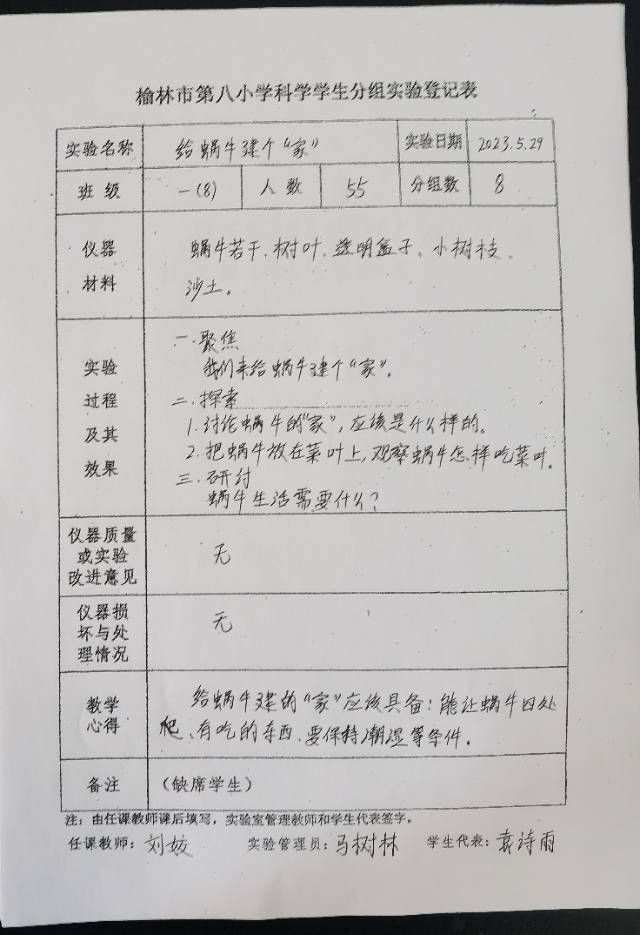 榆林市第八小学科学学生分组实验登记表
实验名称 给蜗牛建个“家” 实验日期 2023.5.29
班级 一(8) 人数 55 分组数 8
仪器 蜗牛若干、树叶、透明盒子、小树枝、
材料 沙土。
一.聚焦
我们来给蜗牛建个“家”。
实验
过程
及其
效果
二.探索
1.讨论蜗牛的“家”,应该是什么样的。
2.把蜗牛放在菜叶上,观察蜗牛怎样吃菜叶。
三.研讨
蜗牛生活需要什么?
仪器质量
或实验
改进意见
无
仪器损
坏与处
理情况
无
教学
心得
给蜗牛建的“家”应该具备:能让蜗牛四处
爬、有吃的东西、要保持潮湿等条件。
备注 (缺席学生)
注:由任课教师课后填写,实验室管理教师和学生代表签字。
任课教师:刘姣 实验管理员:马树林 学生代表:袁诗雨